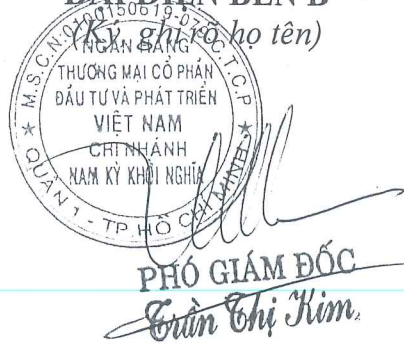 ĐẠI DIỆN BÊN B
(Ký, ghi rõ họ tên)
M.S.C.N:0100150619-079-C.T.C.P
NGÂN HÀNG
THƯƠNG MẠI CỔ PHẦN
ĐẦU TƯ VÀ PHÁT TRIỂN
VIỆT NAM
CHI NHÁNH
NAM KỲ KHỞI NGHĨA
QUẬN 1 - TP. HỒ CHÍ MINH
PHÓ GIÁM ĐỐC
Trần Thị Kim